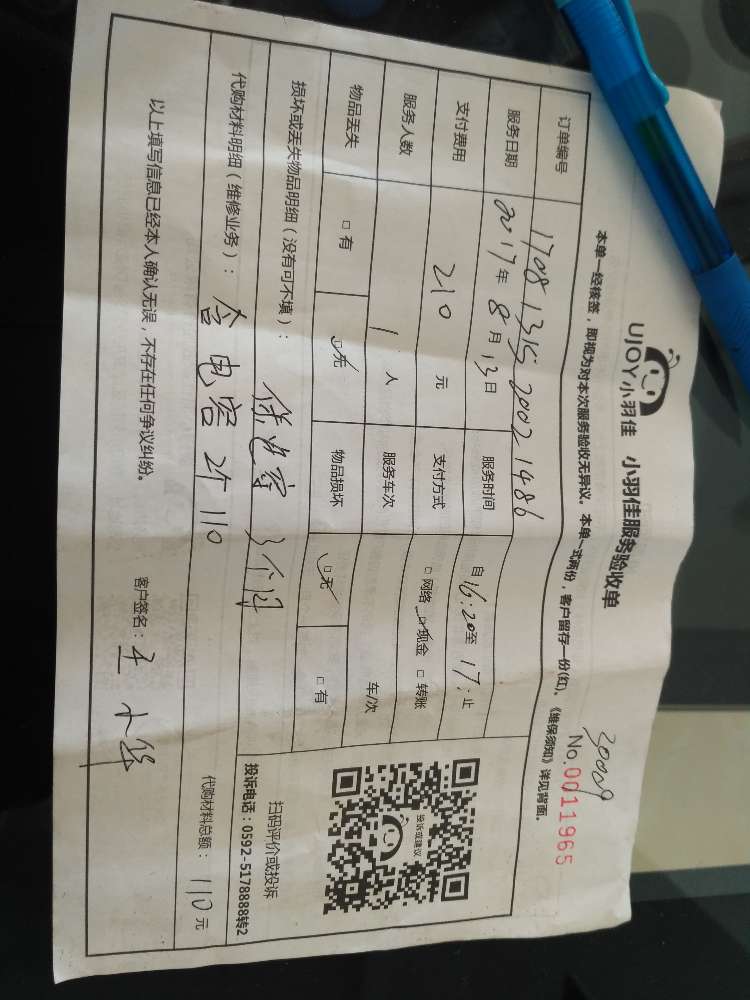 UJOY小羽佳 小羽佳服务验收单
30009
No.0011965
本单一经核签，即视为对本次服务验收无异议。本单一式两份，客户留存一份(红)。《维保须知》详见背面。
订单编号 1708131520021486
服务日期 2017年 8月13日 服务时间 自16:20至17:止
支付费用 210 元 支付方式 □网络 ☑现金 □转账
服务人数 1 人 服务车次 车/次
物品丢失 □有 ☑无 物品损坏 ☑无 □有
损坏或丢失物品明细（没有可不填）： 保 3个月
代购材料明细（维修业务）： 含电容 2个 110
代购材料总额： 110元
投诉或建议
扫码评价或投诉
投诉电话：0592-5178888转2
以上填写信息已经本人确认无误，不存在任何争议纠纷。 客户签名：